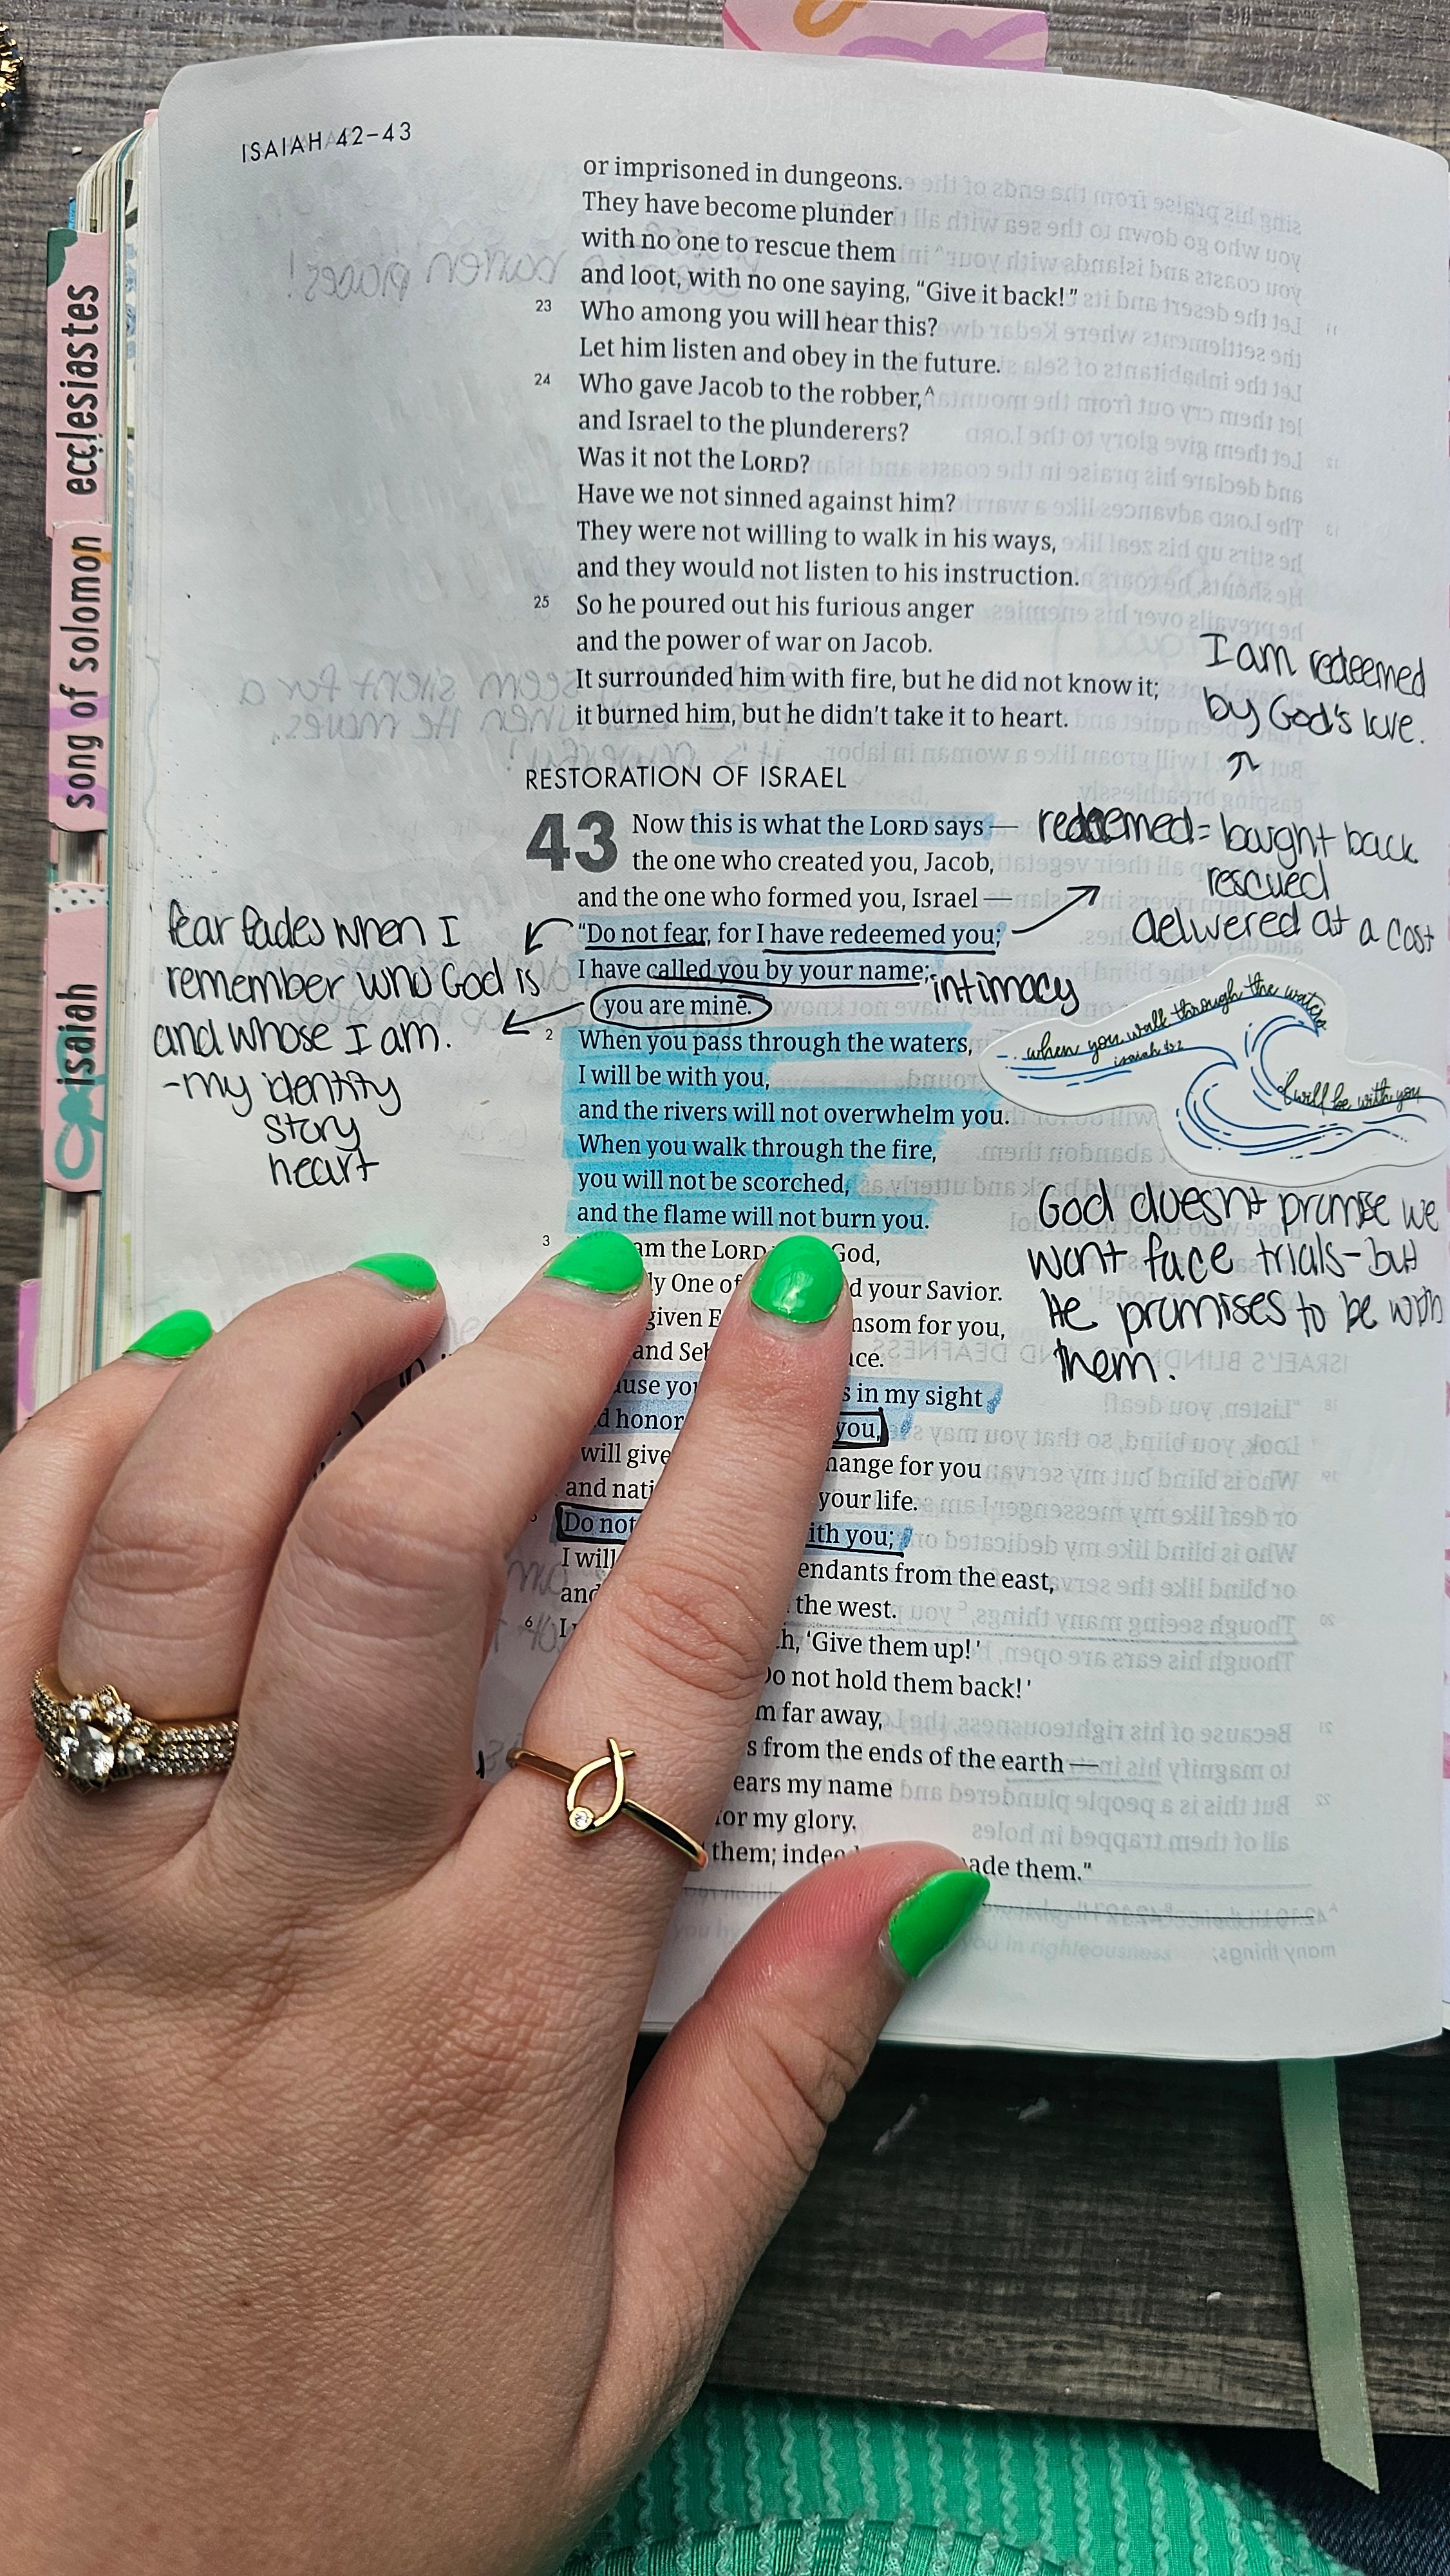 ISAIAH 42–43
or imprisoned in dungeons.
They have become plunder
with no one to rescue them
and loot, with no one saying, “Give it back!”
23 Who among you will hear this?
Let him listen and obey in the future.
24 Who gave Jacob to the robber,^A
and Israel to the plunderers?
Was it not the LORD?
Have we not sinned against him?
They were not willing to walk in his ways,
and they would not listen to his instruction.
25 So he poured out his furious anger
and the power of war on Jacob.
It surrounded him with fire, but he did not know it;
it burned him, but he didn’t take it to heart.
RESTORATION OF ISRAEL
43 Now this is what the LORD says —
the one who created you, Jacob,
and the one who formed you, Israel —
“Do not fear, for I have redeemed you;
I have called you by your name;
you are mine.
2 When you pass through the waters,
I will be with you,
and the rivers will not overwhelm you.
When you walk through the fire,
you will not be scorched,
and the flame will not burn you.
3 am the LORD God,
ly One of d your Savior.
given E nsom for you,
and Seb ace.
ause you s in my sight
d honor you,
will give hange for you
and nati your life.
Do not ith you;
I will endants from the east,
and the west.
6 I h, ‘Give them up!’
Do not hold them back!’
m far away,
s from the ends of the earth —
ears my name
for my glory.
them; indee ade them.”
I am redeemed
by God's love.
redeemed = bought back
rescued
delivered at a cost
intimacy
fear fades when I
remember who God is
and whose I am.
- my identity
story
heart
when you walk through the waters
isaiah 43:2
I will be with you
God doesn't promise we
wont face trials - but
He promises to be with
them.
ecclesiastes
song of solomon
isaiah